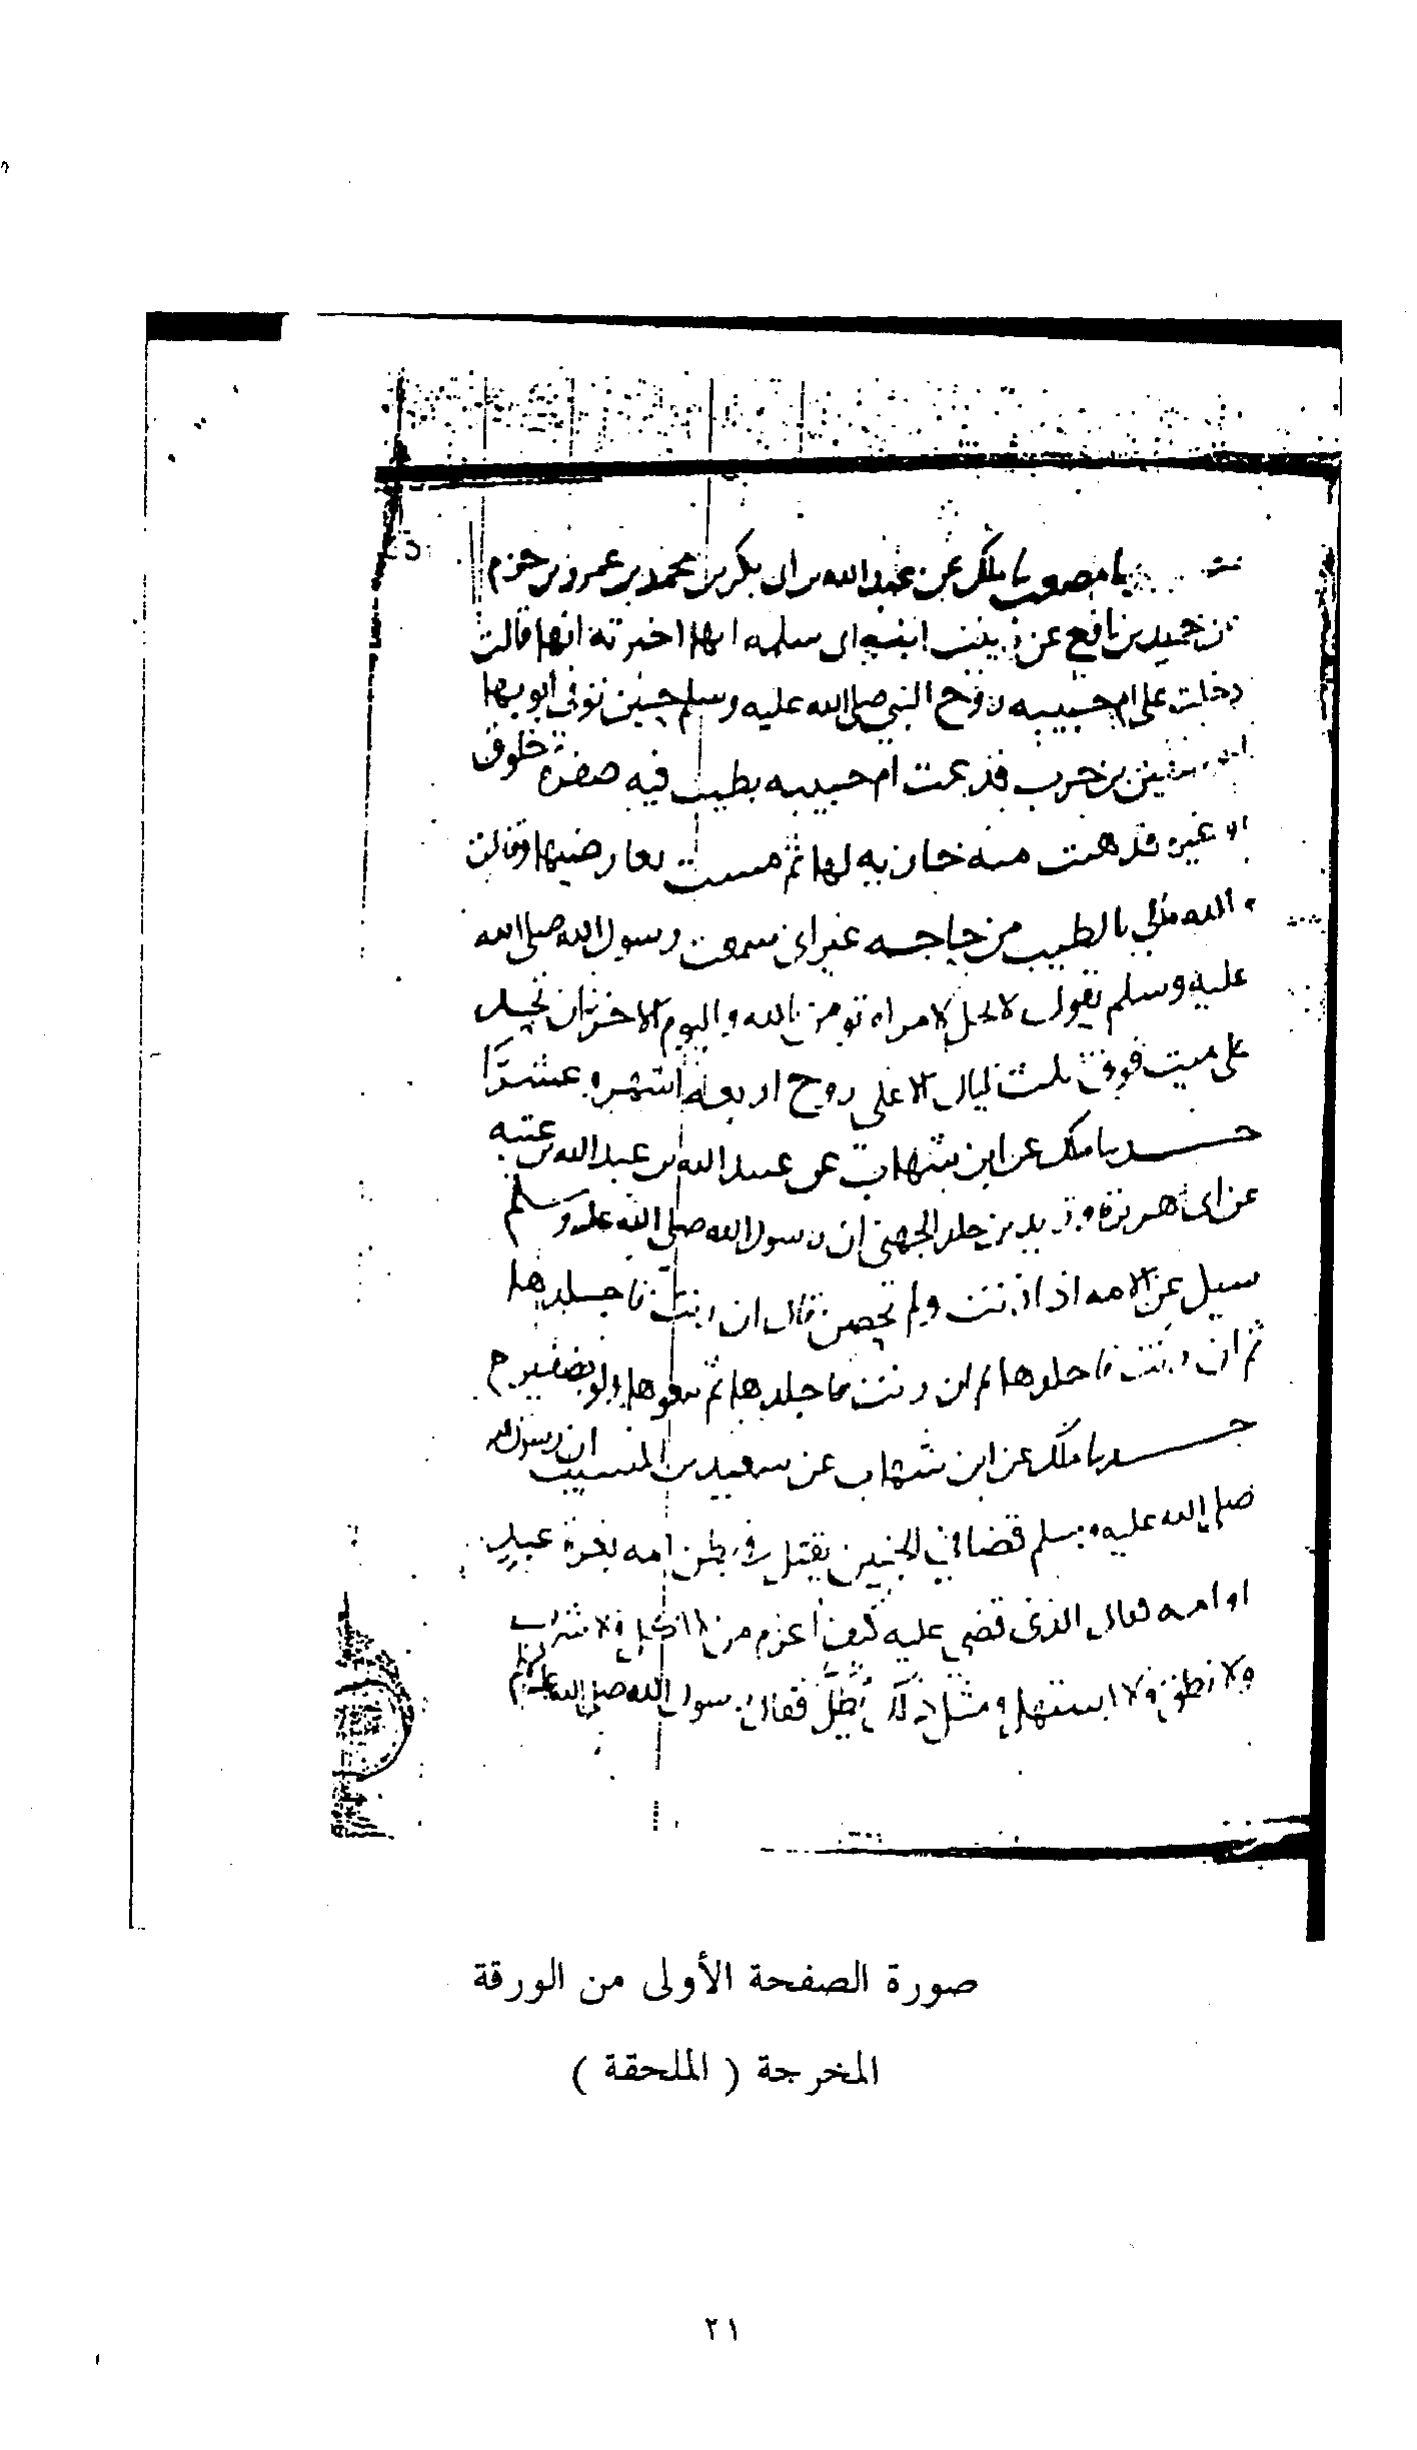 نا مصعب نا ملك عن عبد الله بن ابى بكر بن محمد بن عمرو بن حزم
عن حميد بن نافع عن زينب ابنه ابى سلمه انها اخبرته انها قالت
دخلت على ام حبيبه زوج النبي صلى الله عليه وسلم حين توفى ابوها
بن حرب فدعت ام حبيبه بطيب فيه صفرة خلوق
او غيره فدهنت منه جاريه لها ثم مست بعارضيها وقالت
والله مالي بالطيب من حاجه غير انى سمعت رسول الله صلى الله
عليه وسلم يقول لا يحل لامراه تومن بالله واليوم الاخر ان تحد
على ميت فوق ثلث ليال الا على زوج اربعة اشهر وعشرًا
حدثنا ملك عن ابن شهاب عن عبيد الله بن عبد الله بن عتبه
عن ابى هريرة وزيد بن خلد الجهنى ان رسول الله صلى الله عليه وسلم
سيل عن الامه اذا زنت ولم تحصن قال ان زنت فاجلدوها
ثم ان زنت فاجلدوها ثم ان زنت فاجلدوها ثم بيعوها ولو بضفير
حدثنا ملك عن ابن شهاب عن سعيد بن المسيب ان رسول الله
صلى الله عليه وسلم قضا في الجنين يقتل في بطن امه بغرة عبدٍ
او امه فقال الذى قضى عليه كيف اغرم من لا اكل ولا شرب
ولا نطق ولا استهل ومثل ذلك يُطَلُّ فقال رسول الله صلى الله عليه وسلم
صورة الصفحة الأولى من الورقة
المخرجة ( الملحقة )
٢١